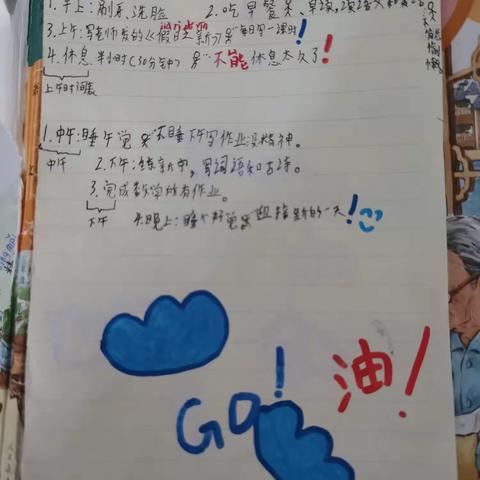 1.早上:刷牙、洗脸 2.吃早餐
3.上午:写老师发的《假日新》 每日写一课时!
4.休息 半小时(30分钟) 不能休息太久了!
上午时间表
1.中午:睡午觉 不睡下午写作业没精神。
中午 2.下午:练新字,写词语和古诗。
3.完成数学所有作业。
下午 4.晚上:睡个好觉 迎接新的一天!
GO!
油!